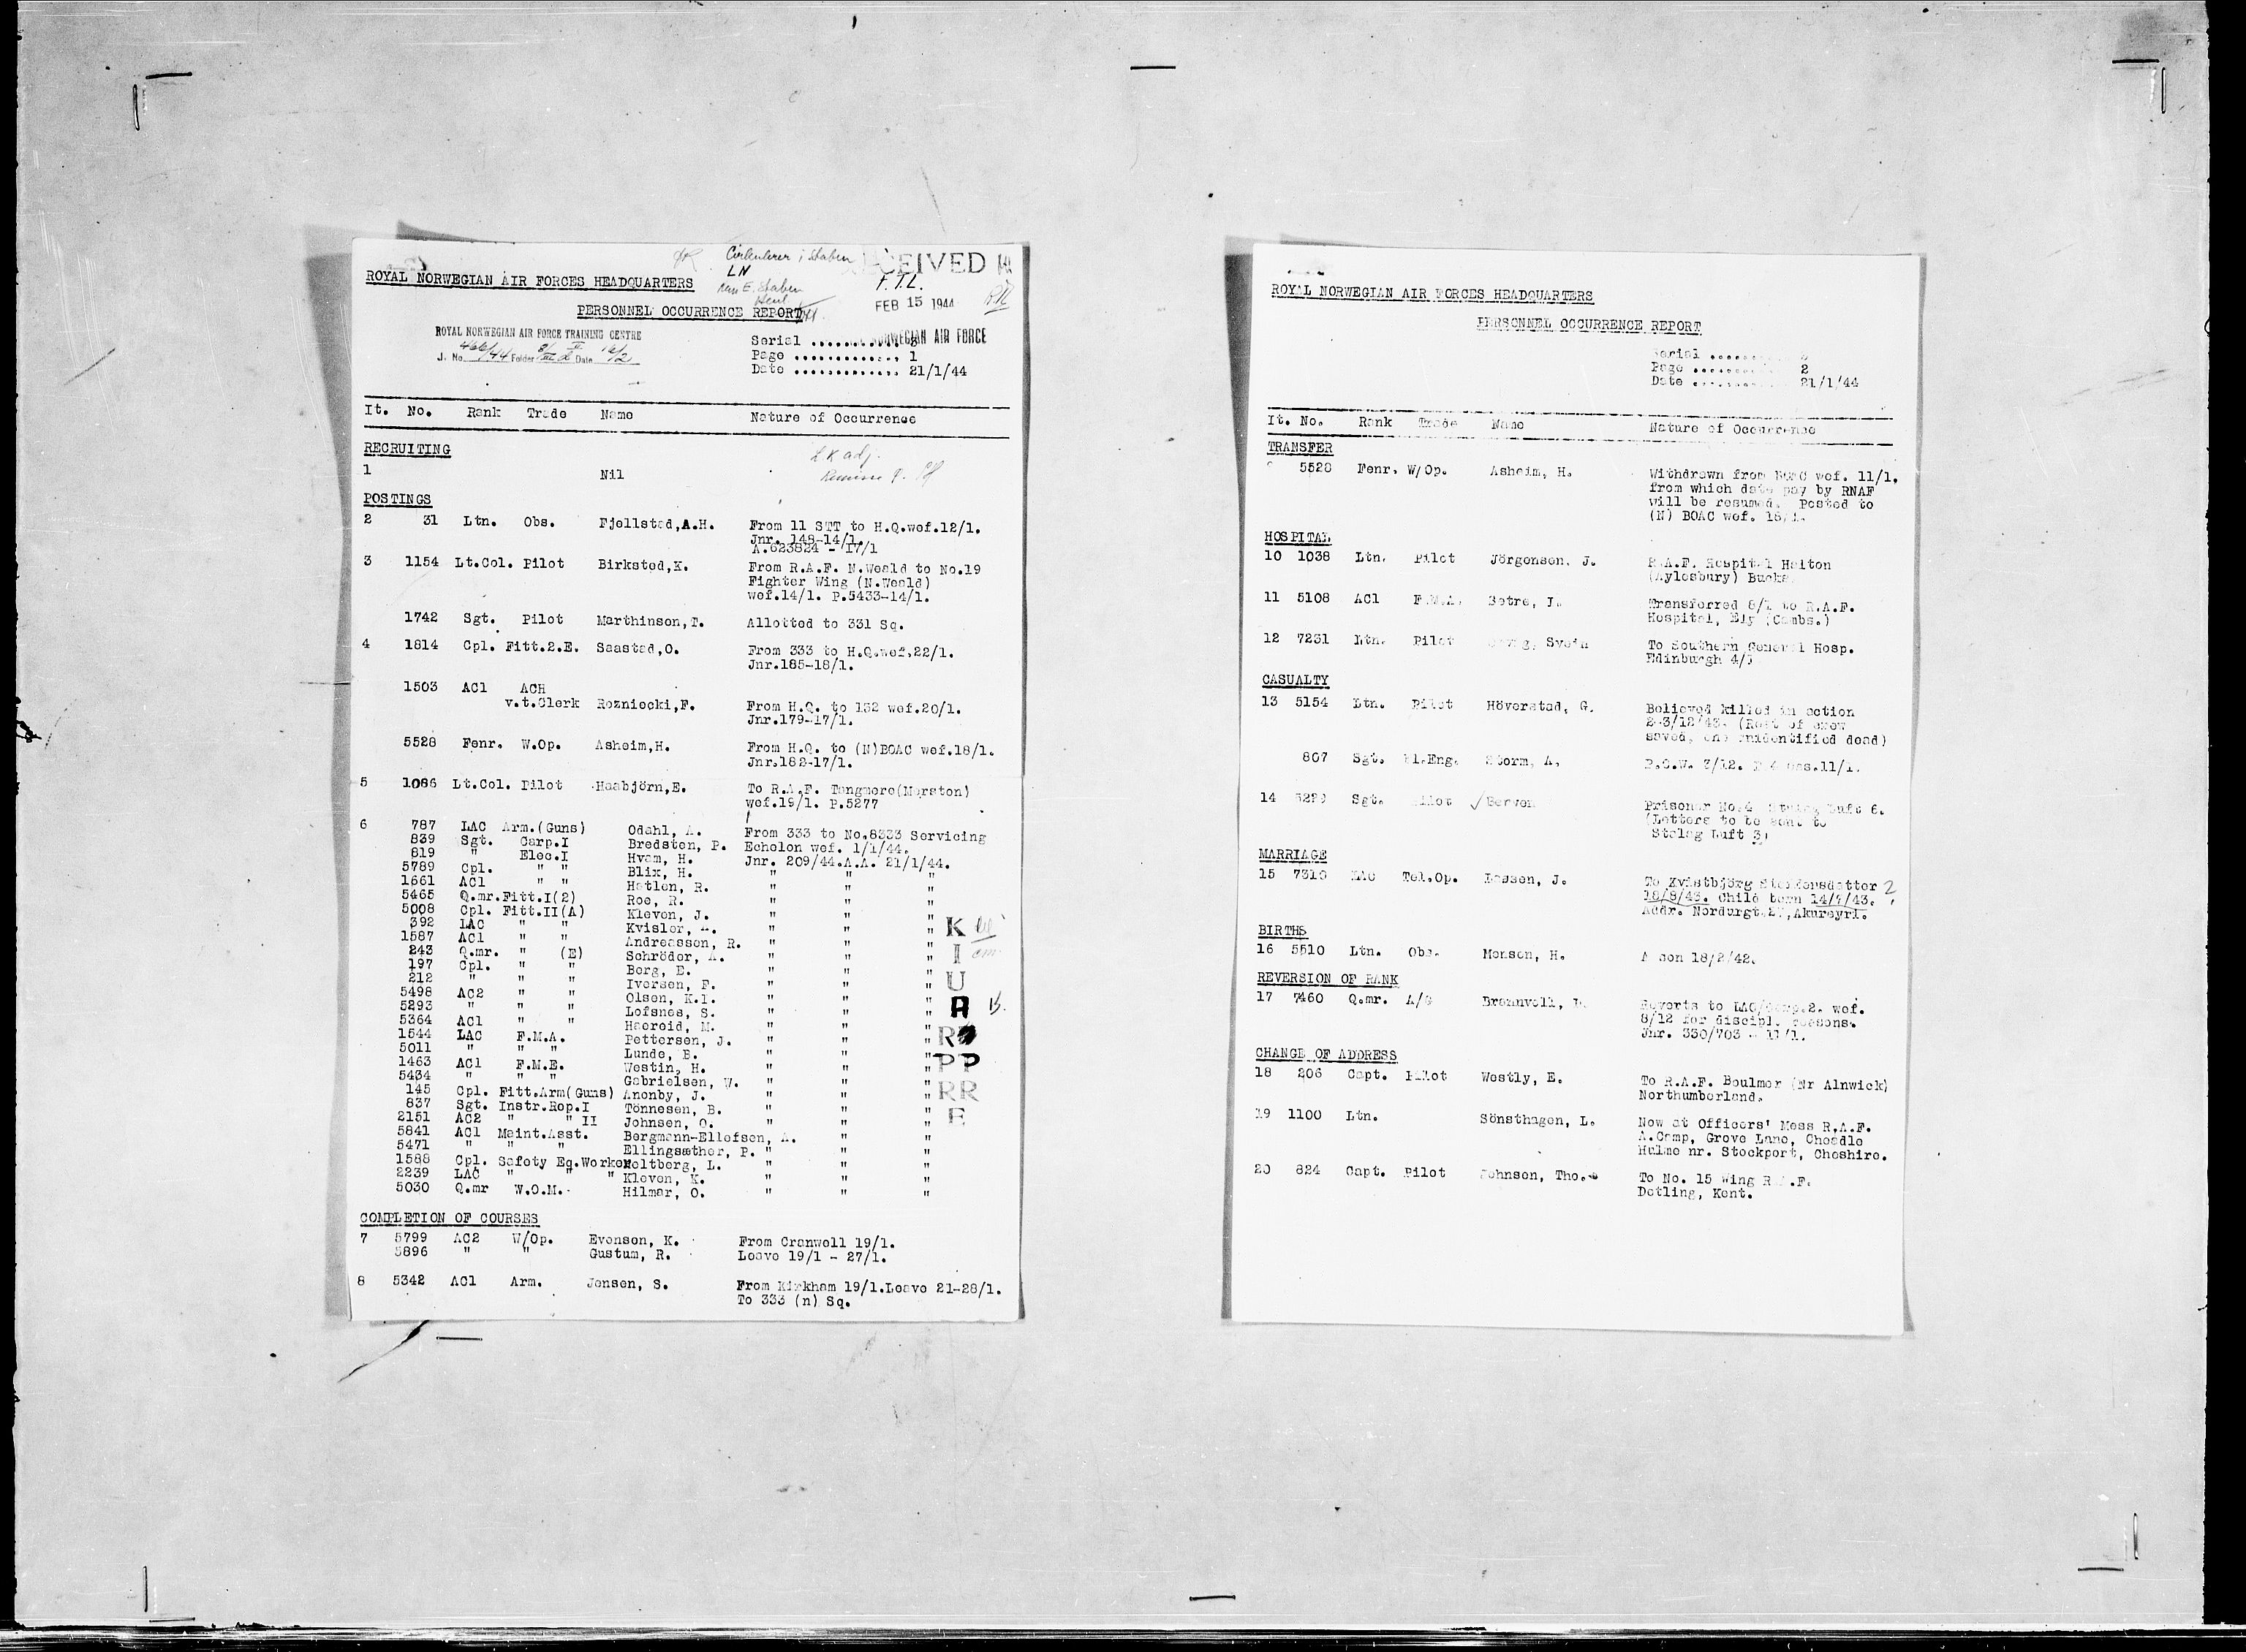 Cirkulerer i Staben
RECEIVED
LN
F.T.L.
ROYAL NORWEGIAN AIR FORCES HEADQUARTERS
FEB 15 1944
PERSONNEL OCCURRENCE REPORT
ROYAL NORWEGIAN AIR FORCE TRAINING CENTRE
NORWEGIAN AIR FORCE
J. No. 466/44 Folder Date 16/2
Serial
Page ............. 1
Date ............. 21/1/44
It. No. Rank Trade Name Nature of Occurrence
RECRUITING
1 Nil
POSTINGS
2 31 Ltn. Obs. Fjellstad,A.H. From 11 STT to H.Q.wef.12/1.
Jnr. 148-14/1.
A.623824 - 17/1
3 1154 Lt.Col. Pilot Birksted,K. From R.A.F. N.Weald to No.19
Fighter Wing (N.Weald)
wef.14/1. P.5433-14/1.
1742 Sgt. Pilot Marthinson,T. Allotted to 331 Sq.
4 1814 Cpl. Fitt.2.E. Saastad,O. From 333 to H.Q.wef.22/1.
Jnr.185-18/1.
1503 AC1 ACH
v.t.Clerk Rozniecki,F. From H.Q. to 132 wef.20/1.
Jnr.179-17/1.
5528 Fenr. W.Op. Asheim,H. From H.Q. to (N)BOAC wef.18/1.
Jnr.182-17/1.
5 1086 Lt.Col. Pilot Haabjörn,E. To R.A.F. Tangmere(Merston)
wef.19/1. P.5277
6 787 LAC Arm.(Guns) Odahl, A. From 333 to No.8333 Servicing
839 Sgt. Carp.I Bredsten, P. Echelon wef. 1/1/44.
819 " Elec.I Hvam, H. Jnr. 209/44.A.A. 21/1/44.
5789 Cpl. " " Blix, H. " " "
1661 AC1 " " Hatlen, R. " " "
5465 Q.mr. Fitt.I(2) Roe, R. " " "
5008 Cpl. Fitt.II(A) Kleven, J. " " "
392 LAC " " Kvisler, A. " " " K
1587 AC1 " " Andreassen, R. " " "
243 Q.mr. " (E) Schröder, A. " " " I
197 Cpl. " " Berg, E. " " "
212 " " " Iversen, F. " " " U
5498 AC2 " " Olsen, K.I. " " "
5293 " " " Lofsnes, S. " " " A
5364 AC1 " " Haereid, M. " " "
1544 LAC F.M.A. Pettersen, J. " " " R
5011 " " " Lunde, B. " " "
1463 AC1 F.M.E. Westin, H. " " " PP
5434 " " " Gabrielsen, W. " " "
145 Cpl. Fitt.Arm(Guns) Anonby, J. " " " RR
837 Sgt. Instr.Rep.I Tönnesen, B. " " "
2151 AC2 " " II Johnsen, O. " " " E
5841 AC1 Maint.Asst. Bergmann-Ellefsen, A. " "
5471 " " " Ellingsæther, P. " " "
1588 Cpl. Safety Eq.Worker Holtberg, L. " " "
2239 LAC " " " Kleven, K. " " "
5030 Q.mr W.O.M. Hilmar, O. " " "
COMPLETION OF COURSES
7 5799 AC2 W/Op. Evensen, K. From Cranwell 19/1.
5896 " " Gustum, R. Leave 19/1 - 27/1.
8 5342 AC1 Arm. Jensen, S. From Kirkham 19/1.Leave 21-28/1.
To 333 (n) Sq.
ROYAL NORWEGIAN AIR FORCES HEADQUARTERS
PERSONNEL OCCURRENCE REPORT
Serial
Page .......... 2
Date .......... 21/1/44
It. No. Rank Trade Name Nature of Occurrence
TRANSFER
5528 Fenr. W/Op. Asheim, H. Withdrawn from BOAC wef. 11/1,
from which date pay by RNAF
will be resumed. Posted to
(N) BOAC wef. 18/1.
HOSPITAL
10 1038 Ltn. Pilot Jörgensen, J. R.A.F. Hospital Halton
(Aylesbury) Bucks.
11 5108 AC1 F.M.A. Sətre, J. Transferred 8/1 to R.A.F.
Hospital, Ely (Cambs.)
12 7231 Ltn. Pilot Svein To Southern General Hosp.
Edinburgh
CASUALTY
13 5154 Ltn. Pilot Höverstad, G. Believed killed in action
2-3/12/43. (Rest of crew
saved, one unidentified dead)
807 Sgt. Fl.Eng. Storm, A. P.O.W. 3/12.
14 Sgt. Pilot Berven Prisoner No.4 Stalag Luft 6.
(Letters to be sent to
Stalag Luft 3)
MARRIAGE
15 7310 LAC Tel.Op. Lassen, J. To Kvistbjörg
18/8/43. Child born 14/9/43.
Addr. Nordurgt. , Akureyri.
BIRTHS
16 5510 Ltn. Obs. Monsen, H. A son 18/2/42.
REVERSION OF RANK
17 7460 Q.mr. Brennvolk, Reverts to LAC/ wef.
8/12 for discipl. reasons.
Jnr. 330/703
CHANGE OF ADDRESS
18 206 Capt. Pilot Westly, E. To R.A.F. Boulmer (Nr Alnwick)
Northumberland.
19 1100 Ltn. Sönsthagen, L. Now at Officers' Mess R.A.F.
A.Camp, Grove Lane, Cheadle
Hulme nr. Stockport, Cheshire.
20 824 Capt. Pilot Johnsen, Tho. To No. 15 Wing R.A.F.
Detling, Kent.